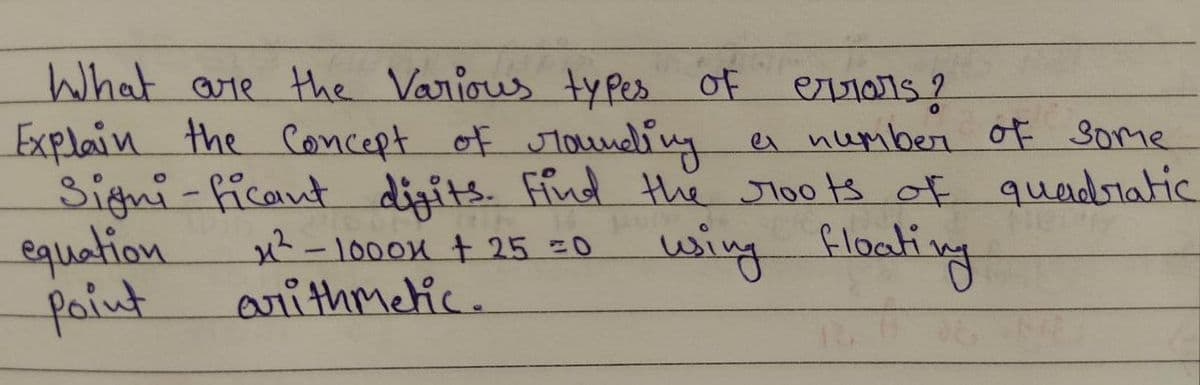 What are the Various types of errors?
Explain the Concept of rounding a number of Some
Signi-ficant digits. Find the roots of quadratic
equation x² - 1000x + 25 = 0 using floating
point arithmetic.